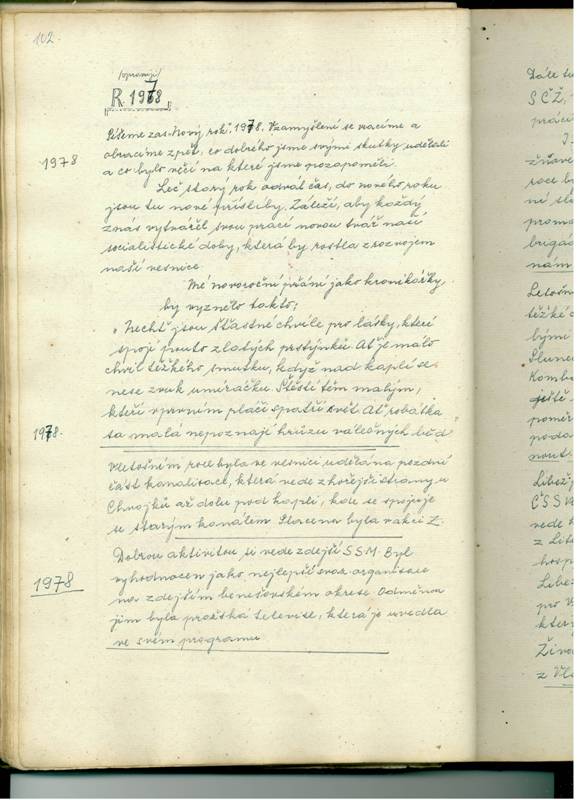 102.
/opravuji/
R. 1978
1978
Píšeme zas. Nový rok. 1978. Vzamyšlení se vracíme a
obracíme zpět, co dobrého jsme svými skutky udělali
a co bylo věcí na které jsme pozapoměli.
Leč starý rok odvál čas, do nového roku
jsou tu nové přísliby. Záleží, aby každý
znás vytvářel svou prací novou tvář naší
socialistické doby, která by rostla z rozvojem
naší vesnice.
Mé novoroční přání jako kronikářky,
by vyznělo takto:
„Nechť jsou šťastné chvíle pro lásky, které
spojí pouto zlatých prstýnků. Ať je málo
chvil těžkého smutku, když nad kaplí se
nese zvuk umíráčku. Štěstí těm malým,
kteří vprvním pláči spatří svět. Ať robátka
ta malá nepoznají hrůzu válečných běd"
1978.
Vletošním roce byla ve vesnici udělána pozdní
část kanalisace, která vede z hořejší strany u
Chvojků až dolu pod kapli, kde se spojuje
se starým kanálem. Stavena byla vakci Z.
1978
Dobrou aktivitou si vede zdejší S.S.M. Byl
vyhodnocen jako nejlepší svaz. organisace
na zdejším benešovském okrese. Odměnou
jim byla pražská televise, která je uvedla
ve svém programu
Dále
SČŽ,
práci
roce
brigád
nám
Letošn
těžké
bými
Slunce
Kombo
ještě
poměr
podo
nout.
Liboš
ČSS
vede
z Lite
hosp
Libež
pro
kter
Živo
z Vla